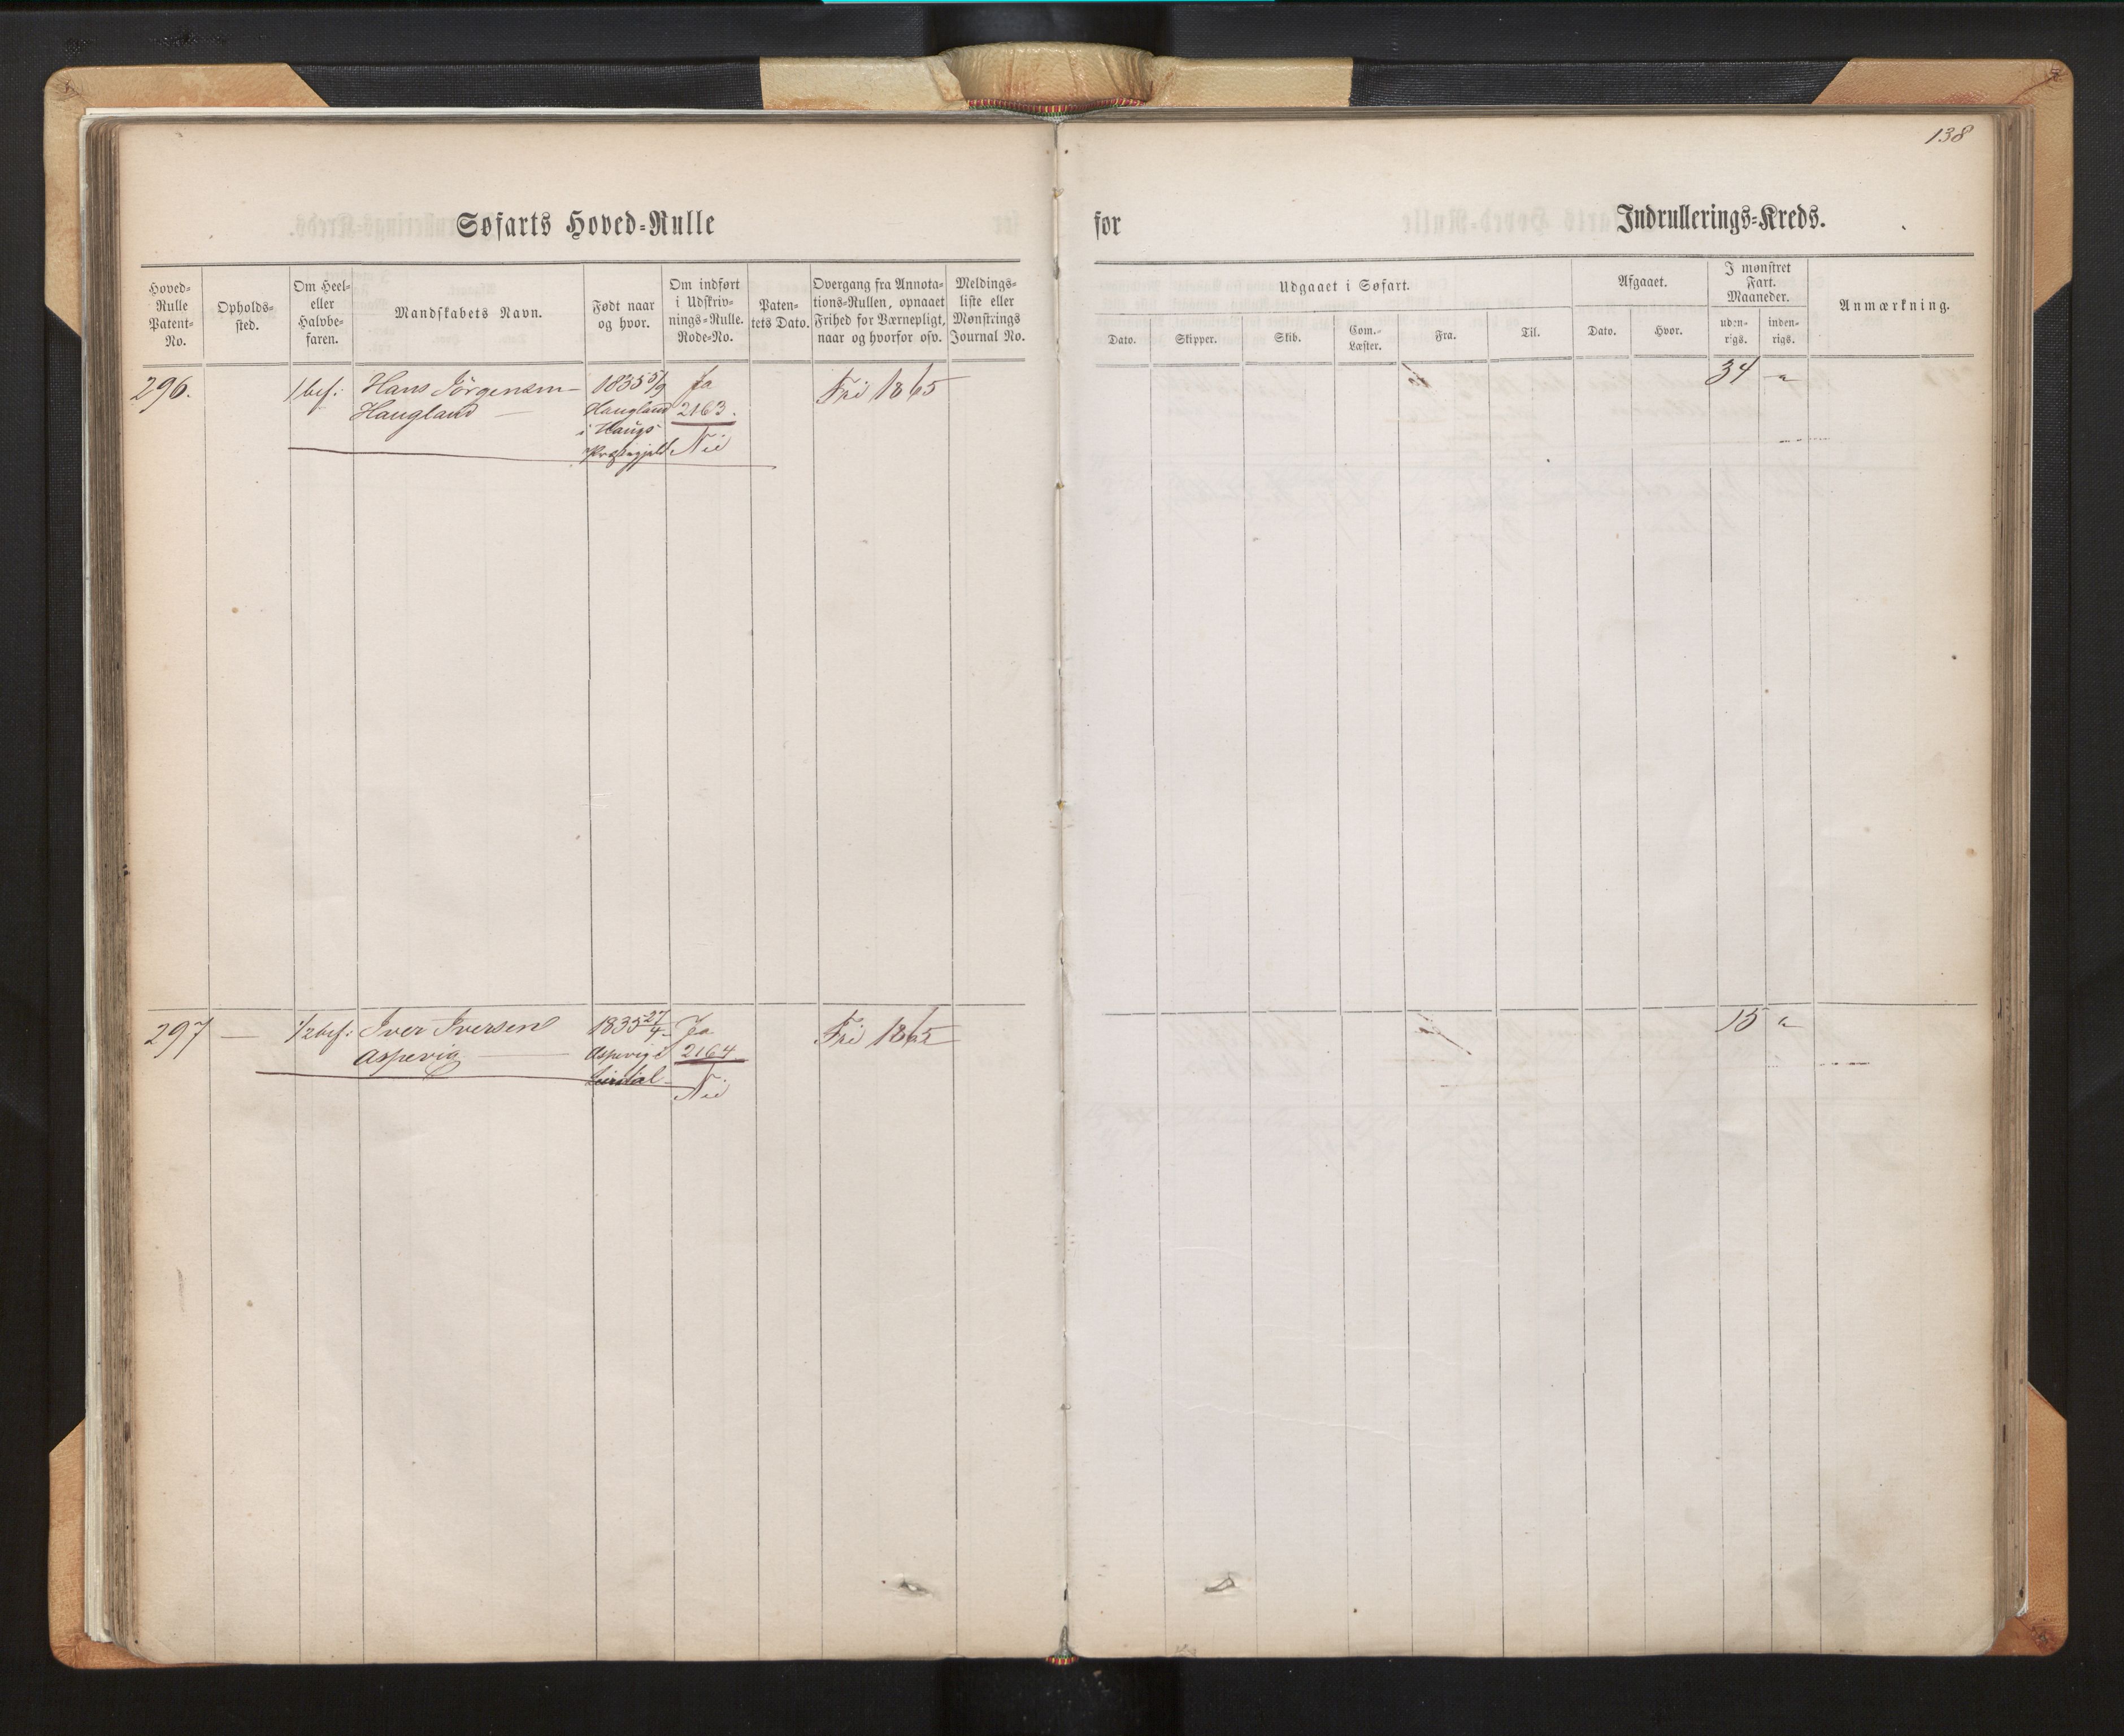 138
Søfarts Hoved-Rulle
for
Indrullerings-Kreds.
Hoved-
Rulle
Patent-
No.
Opholds-
sted.
Om Heel-
eller
Halvbe-
faren.
Mandskabets Navn.
Født naar
og hvor.
Om indført
i Udskriv-
nings-Rulle.
Rode-No.
Paten-
tets Dato.
Overgang fra Annota-
tions-Rullen, opnaaet
Frihed for Værnepligt,
naar og hvorfor osv.
Meldings-
liste eller
Mønstrings
Journal No.
Udgaaet i Søfart.
Dato.
Skipper.
Skib.
Com.-
Læster.
Fra.
Til.
Afgaaet.
Dato.
Hvor.
I mønstret
Fart.
Maaneder.
uden-
rigs.
inden-
rigs.
Anmærkning.
296.
1/bef:
Hans Jörgensen
Haugland
1835 5/9
Haugland
i Haugs
Præstegjeld
Ja
2163.
Nei
Fri 1865
34
297
1/2bef:
Iver Iversen
Aspevig
1835 27/4
Aspevig i
Ja
2164
Nei
Fri 1865
15